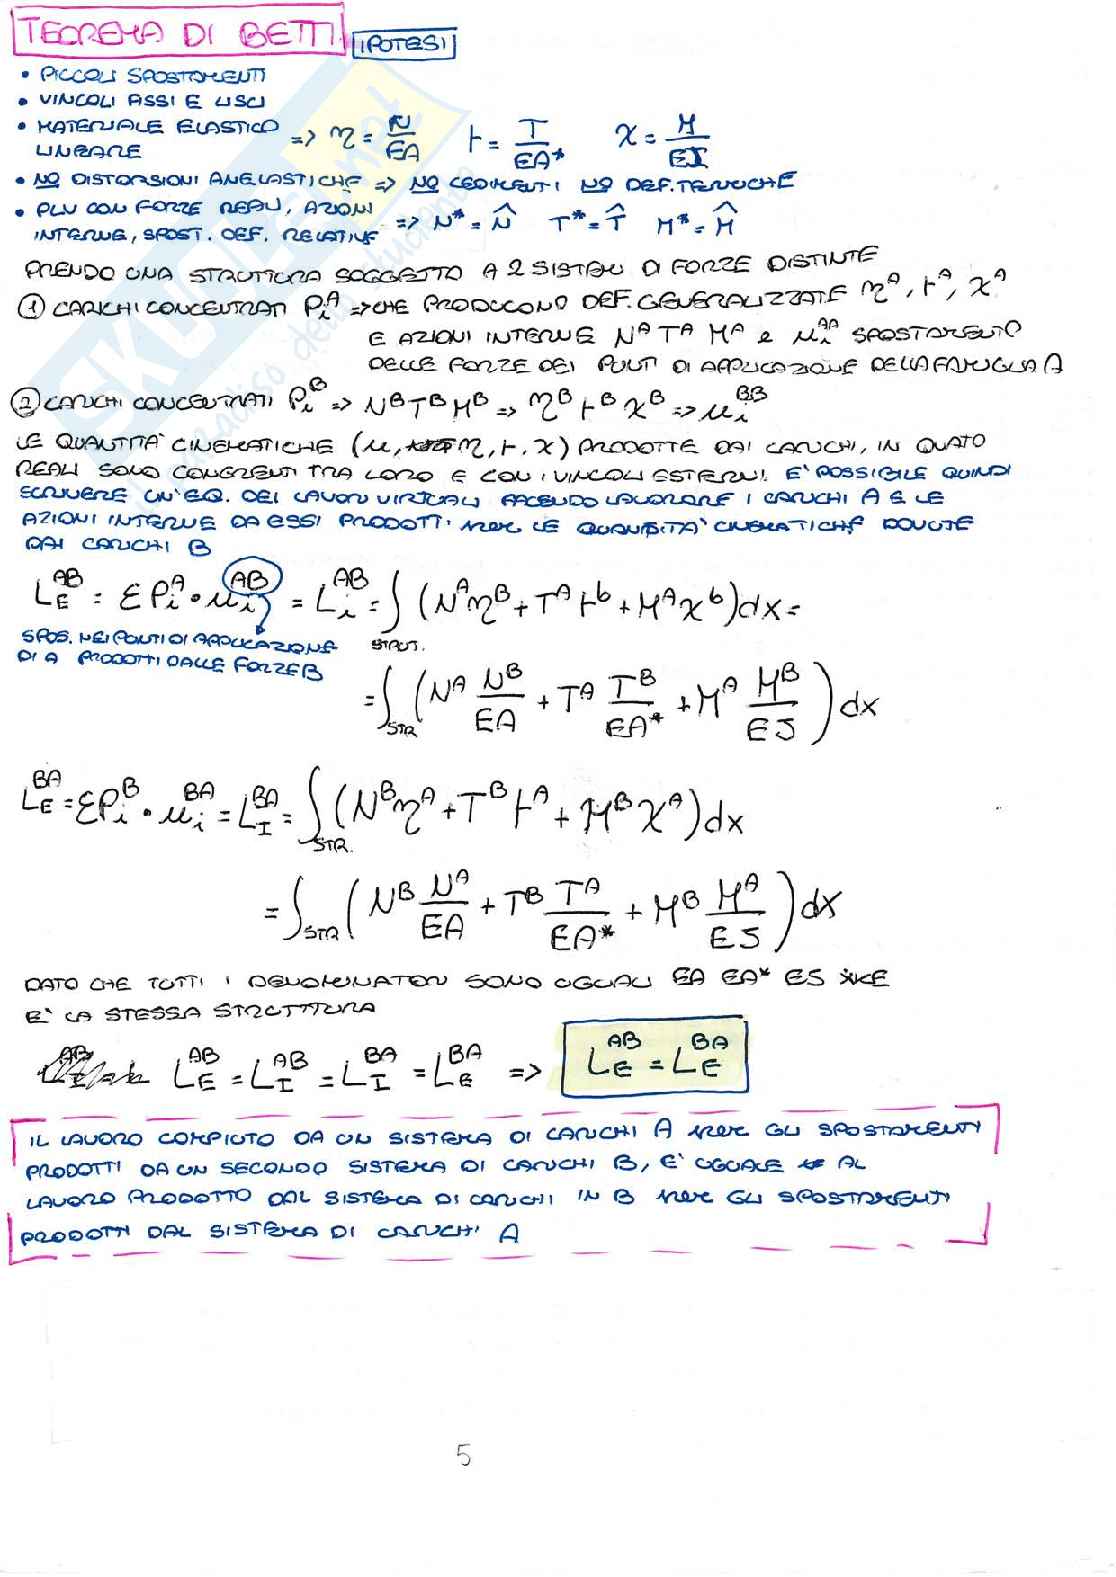 TEOREMA DI BETTI IPOTESI
• PICCOLI SPOSTAMENTI
• VINCOLI FISSI E LISCI
• MATERIALE ELASTICO LINEARE => η = N/EA t = T/EA* χ = M/EI
• NO DISTORSIONI ANELASTICHE => NO CEDIMENTI NO DEF. TERMICHE
• PLV CON FORZE REALI, AZIONI
INTERNE, SPOST. DEF. RELATIVE => N* = N̂ T* = T̂ M* = M̂
PRENDO UNA STRUTTURA SOGGETTO A 2 SISTEMI DI FORZE DISTINTE
① CARICHI CONCENTRATI Pᵢᴬ => CHE PRODUCONO DEF. GENERALIZZATE ηᴬ, tᴬ, χᴬ
E AZIONI INTERNE Nᴬ Tᴬ Mᴬ e uᵢᴬᴬ SPOSTAMENTO
DELLE FORZE DEI PUNTI DI APPLICAZIONE DELLA FAMIGLIA A
② CARICHI CONCENTRATI Pᵢᴮ => Nᴮ Tᴮ Mᴮ => ηᴮ tᴮ χᴮ => uᵢᴮᴮ
LE QUANTITA' CINEMATICHE (u, η, t, χ) PRODOTTE DAI CARICHI, IN QUATO
REALI SONO CONGRENTI TRA LORO E CON I VINCOLI ESTERNI. E' POSSIBILE QUINDI
SCRIVERE UN'EQ. DEI LAVORI VIRTUALI FACENDO LAVORARE I CARICHI A E LE
AZIONI INTERNE DA ESSI PRODOTTI PER LE QUANTITA' CINEMATICHE DOVUTE
DAI CARICHI B
L_E^AB = ΣPᵢᴬ • uᵢᴬᴮ = Lᵢᴬᴮ = ∫ STRUT. (Nᴬηᴮ + Tᴬtᵇ + Mᴬχᵇ)dx =
SPOS. NEI PUNTI DI APPLICAZIONE
DI A PRODOTTI DALLE FORZE B
= ∫ STR (Nᴬ Nᴮ/EA + Tᴬ Tᴮ/EA* + Mᴬ Mᴮ/EJ) dx
L_E^BA = ΣPᵢᴮ • uᵢᴮᴬ = L_I^BA = ∫ STR. (Nᴮηᴬ + Tᴮtᴬ + Mᴮχᴬ)dx
= ∫ STR (Nᴮ Nᴬ/EA + Tᴮ Tᴬ/EA* + Mᴮ Mᴬ/EJ) dx
DATO CHE TUTTI I DENOMINATORI SONO UGUALI EA EA* EJ XKE
E' LA STESSA STRUTTURA
L_E^AB = L_I^AB = L_I^BA = L_E^BA => L_E^AB = L_E^BA
IL LAVORO COMPIUTO DA UN SISTEMA DI CARICHI A PER GLI SPOSTAMENTI
PRODOTTI DA UN SECONDO SISTEMA DI CARICHI B, E' UGUALE AL
LAVORO PRODOTTO DAL SISTEMA DI CARICHI IN B PER GLI SPOSTAMENTI
PRODOTTI DAL SISTEMA DI CARICHI A
5
SKUOLA.net
il paradiso dello studente